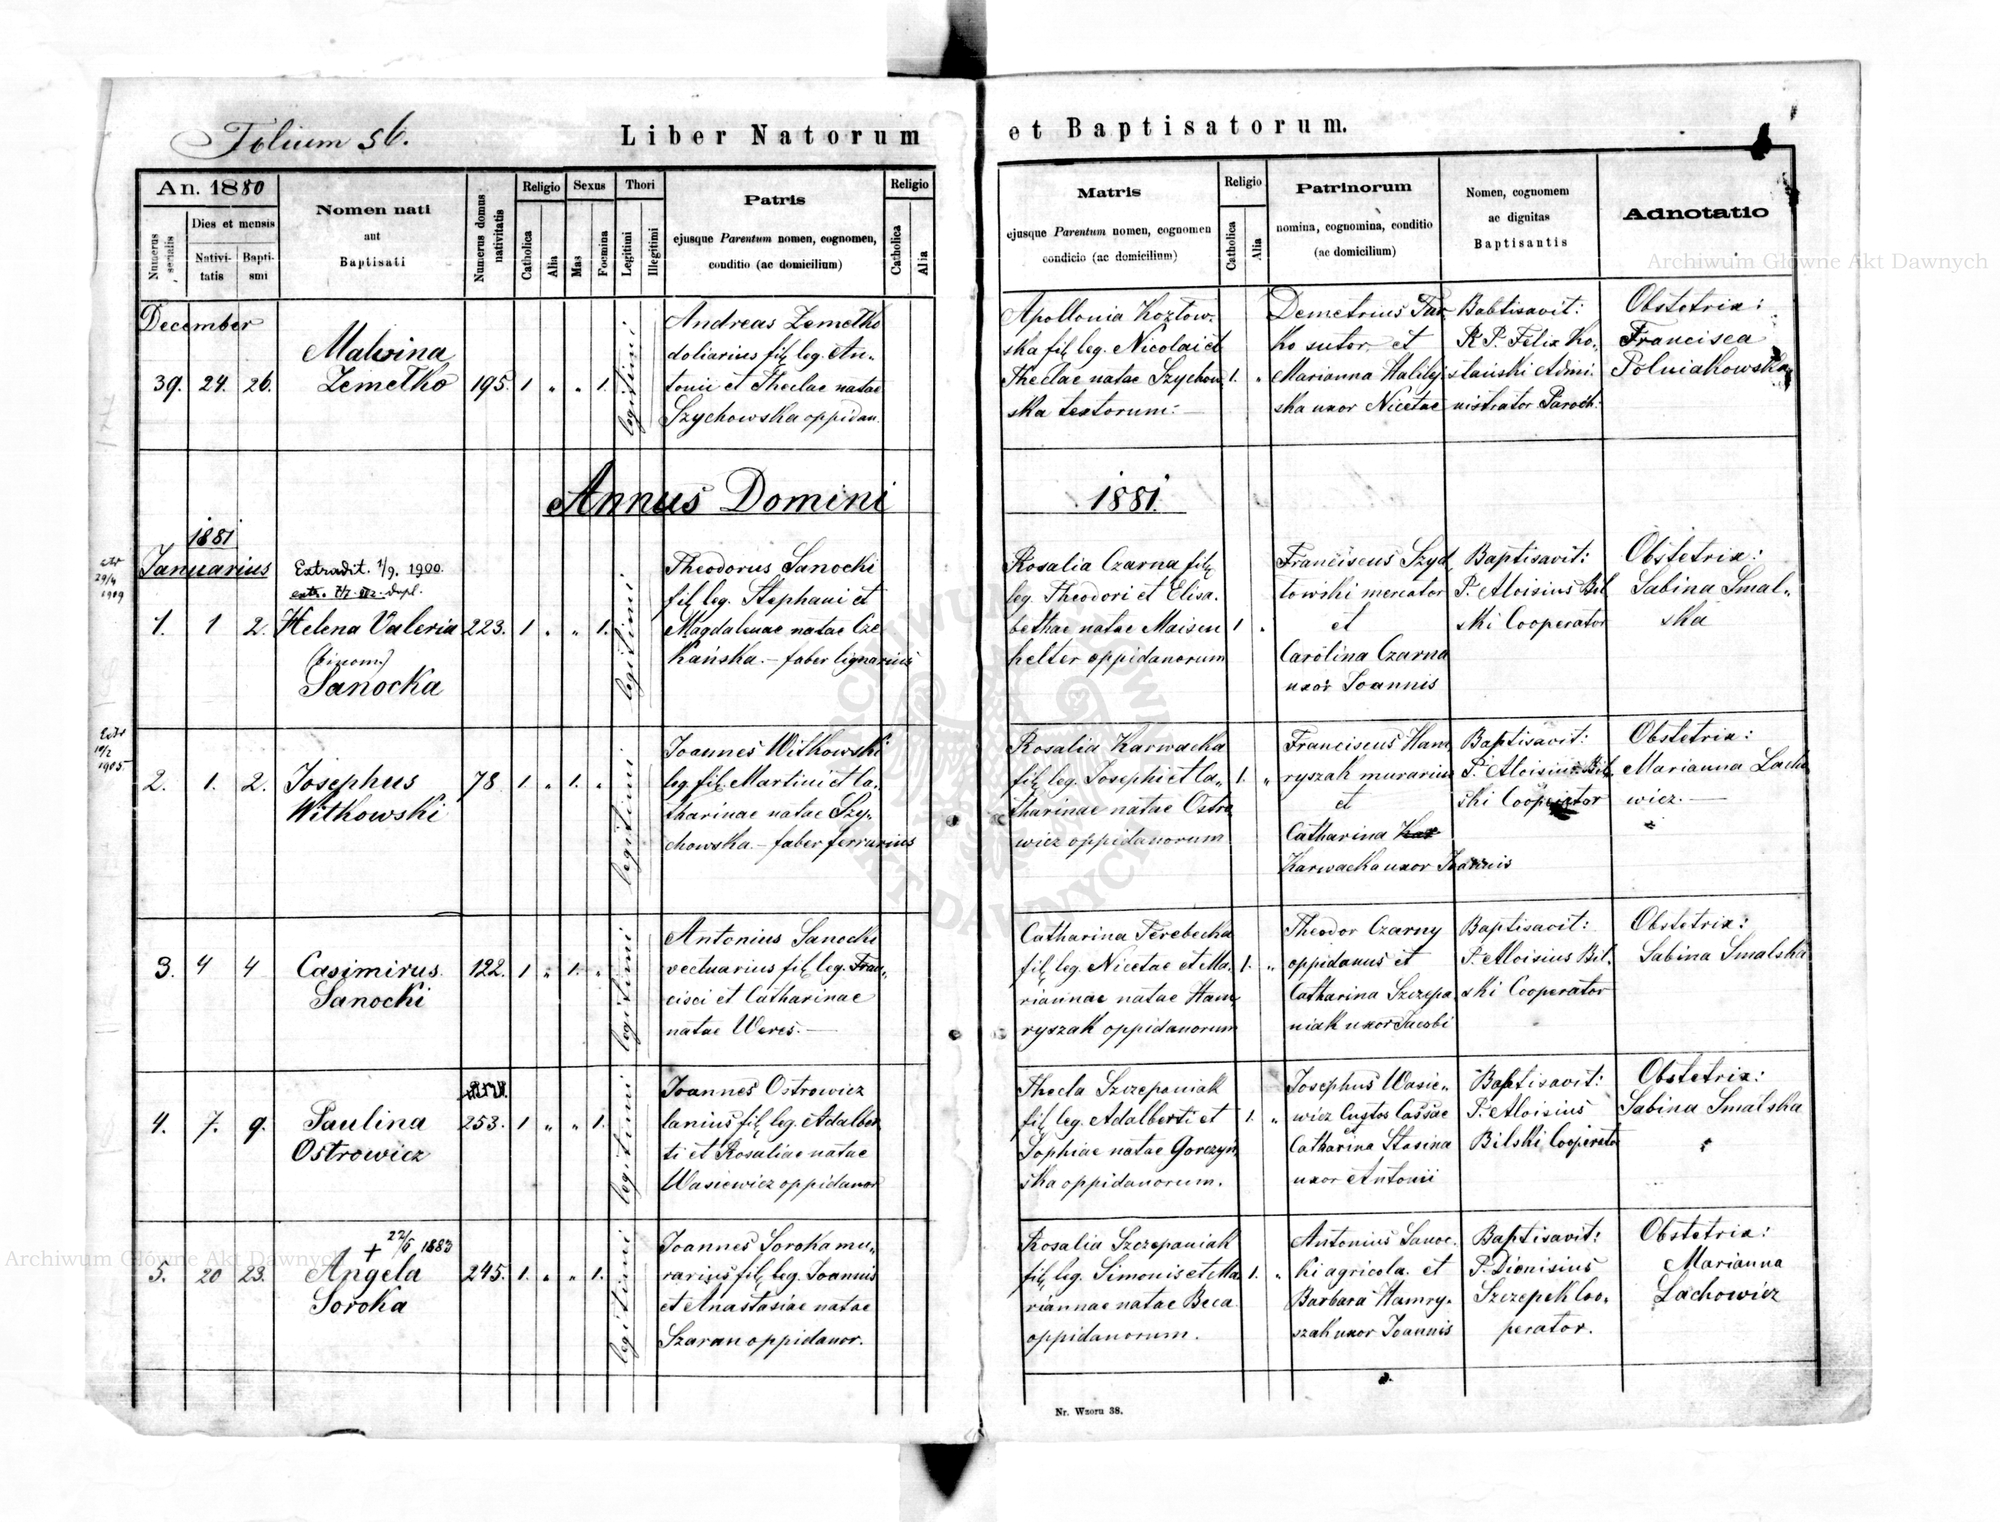 Folium 56.
Liber Natorum
et Baptisatorum.
An. 1880
Numerus serialis
Dies et mensis
Nativitatis
Baptismi
Nomen nati
aut
Baptisati
Numerus domus nativitatis
Religio
Catholica
Alia
Sexus
Mas
Foemina
Thori
Legitimi
Illegitimi
Patris
ejusque Parentum nomen, cognomen,
conditio (ac domicilium)
Religio
Catholica
Alia
Matris
ejusque Parentum nomen, cognomen
condicio (ac domicilium)
Religio
Catholica
Alia
Patrinorum
nomina, cognomina, conditio
(ac domicilium)
Nomen, cognomem
ac dignitas
Baptisantis
Adnotatio
December
39. 24. 26.
Malwina
Zemełko
195. 1 „ „ 1.
legitimi
Andreas Zemełko
doliarius fil. leg. An-
tonii et Theclae natae
Szychowska oppidan.
Apollonia Kozłow-
ska fil. leg. Nicolai et
Theclae natae Szychow
ska textorum.-
1. „
Demetrius
ko sutor. et
Marianna
ska uxor Nicetae
Babtisavit:
R. P. Felix Ko-
stański Admi-
nistrator Paroch.
Obstetrix:
Francisca
Polniakowska
Annus Domini
1881.
1881
Januarius
29/4
1909
1. 1 2.
Extradit. 1/9. 1900.
dupl.
Helena Valeria
(binom)
Sanocka
223. 1 „ „ 1.
legitimi
Theodorus Sanocki
fil. leg. Stephani et
Magdalenae natae Cze
kańska.- faber lignarius
Rosalia Czarna fil.
leg. Theodori et Elisa-
bethae natae Maisen
helter oppidanorum
1 „
Franciscus Szyd
łowski mercator
et
Carolina Czarna
uxor Joannis
Baptisavit:
P. Aloisius Bil
ski Cooperator
Obstetrix:
Sabina Smal-
ska
Extr
10/2
1905.
2. 1. 2.
Josephus
Witkowski
78 1. „ 1. „
legitimi
Joannes Witkowski
leg. fil. Martini et Ca-
tharinae natae Szy-
chowska.- faber ferrarius
Rosalia Karwacka
fil. leg. Josephi et Ca-
tharinae natae Ostro
wicz oppidanorum
1. „
Franciscus Ham
ryszak murarius
et
Catharina Kar
Karwacka uxor Joannis
Baptisavit:
P. Aloisius Bil
ski Cooperator
Obstetrix:
Marianna Lacho
wicz.-
3. 4 4
Casimirus
Sanocki
122. 1 „ 1. „
legitimi
Antonius Sanocki
vectuarius fil. leg. Fran-
cisci et Catharinae
natae Weres.-
Catharina Terebecka
fil. leg. Nicetae et Ma-
riannae natae Ham
ryszak oppidanorum
1. „
Theodor Czarny
oppidanus et
Catharina Szczepa
niak uxor Jacobi
Baptisavit:
P. Aloisius Bil-
ski Cooperator
Obstetrix:
Sabina Smalska
4. 7. 9.
Paulina
Ostrowicz
253. 1 „ „ 1.
legitimi
Joannes Ostrowicz
lanius fil. leg. Adalber
ti et Rosaliae natae
Wasiewicz oppidanor
Thecla Szczepaniak
fil. leg. Adalberti et
Sophiae natae Gorczyń
ska oppidanorum.
1. „
Josephus Wasie-
wicz Custos Cassae
et
Catharina Stasina
uxor Antonii
Baptisavit:
P. Aloisius
Bilski Cooperator
Obstetrix:
Sabina Smalska
5. 20 23.
+ 22/6 1883
Angela
Soroka
245. 1. „ „ 1.
legitimi
Joannes Soroka mu-
rarius fil. leg. Joannis
et Anastasiae natae
Szaran oppidanor.
Rosalia Szczepaniak
fil. leg. Simonis et Ma
riannae natae Beca
oppidanorum.
1. „
Antonius Sanoc-
ki agricola. et
Barbara Hamry-
szak uxor Joannis
Baptisavit:
P. Dionisius
Szczepek Coo-
perator.
Obstetrix:
Marianna
Lachowicz
Nr. Wzoru 38.
Archiwum Główne Akt Dawnych
Archiwum Główne Akt Dawnych